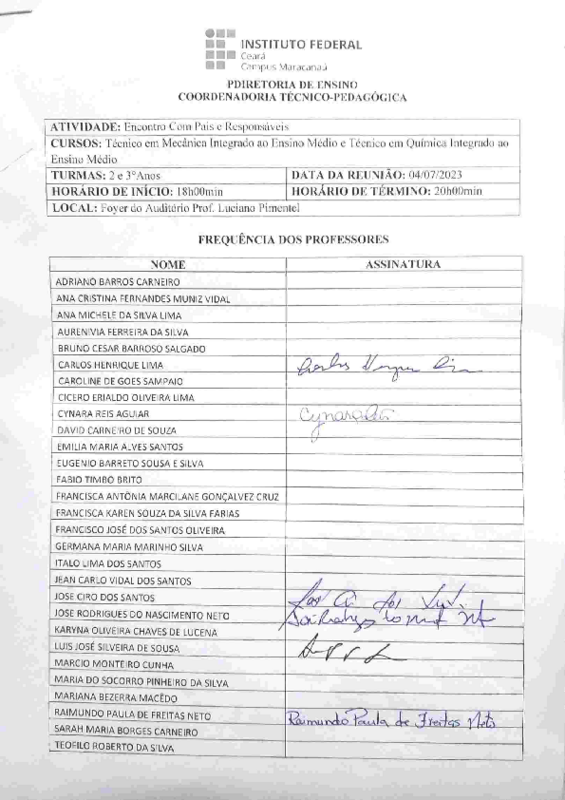 INSTITUTO FEDERAL
Ceará
Campus Maracanaú
PDIRETORIA DE ENSINO
COORDENADORIA TÉCNICO-PEDAGÓGICA
ATIVIDADE: Encontro Com Pais e Responsáveis
CURSOS: Técnico em Mecânica Integrado ao Ensino Médio e Técnico em Química Integrado ao
Ensino Médio
TURMAS: 2 e 3°Anos DATA DA REUNIÃO: 04/07/2023
HORÁRIO DE INÍCIO: 18h00min HORÁRIO DE TÉRMINO: 20h00min
LOCAL: Foyer do Auditório Prof. Luciano Pimentel
FREQUÊNCIA DOS PROFESSORES
NOME ASSINATURA
ADRIANO BARROS CARNEIRO
ANA CRISTINA FERNANDES MUNIZ VIDAL
ANA MICHELE DA SILVA LIMA
AURENIVIA FERREIRA DA SILVA
BRUNO CESAR BARROSO SALGADO
CARLOS HENRIQUE LIMA Carlos
CAROLINE DE GOES SAMPAIO
CICERO ERIALDO OLIVEIRA LIMA
CYNARA REIS AGUIAR Cynara
DAVID CARNEIRO DE SOUZA
EMILIA MARIA ALVES SANTOS
EUGENIO BARRETO SOUSA E SILVA
FABIO TIMBO BRITO
FRANCISCA ANTÔNIA MARCILANE GONÇALVEZ CRUZ
FRANCISCA KAREN SOUZA DA SILVA FARIAS
FRANCISCO JOSÉ DOS SANTOS OLIVEIRA
GERMANA MARIA MARINHO SILVA
ITALO LIMA DOS SANTOS
JEAN CARLO VIDAL DOS SANTOS
JOSE CIRO DOS SANTOS
JOSE RODRIGUES DO NASCIMENTO NETO
KARYNA OLIVEIRA CHAVES DE LUCENA
LUIS JOSÉ SILVEIRA DE SOUSA
MARCIO MONTEIRO CUNHA
MARIA DO SOCORRO PINHEIRO DA SILVA
MARIANA BEZERRA MACÊDO
RAIMUNDO PAULA DE FREITAS NETO Raimundo Paula de Freitas Neto
SARAH MARIA BORGES CARNEIRO
TEOFILO ROBERTO DA SILVA